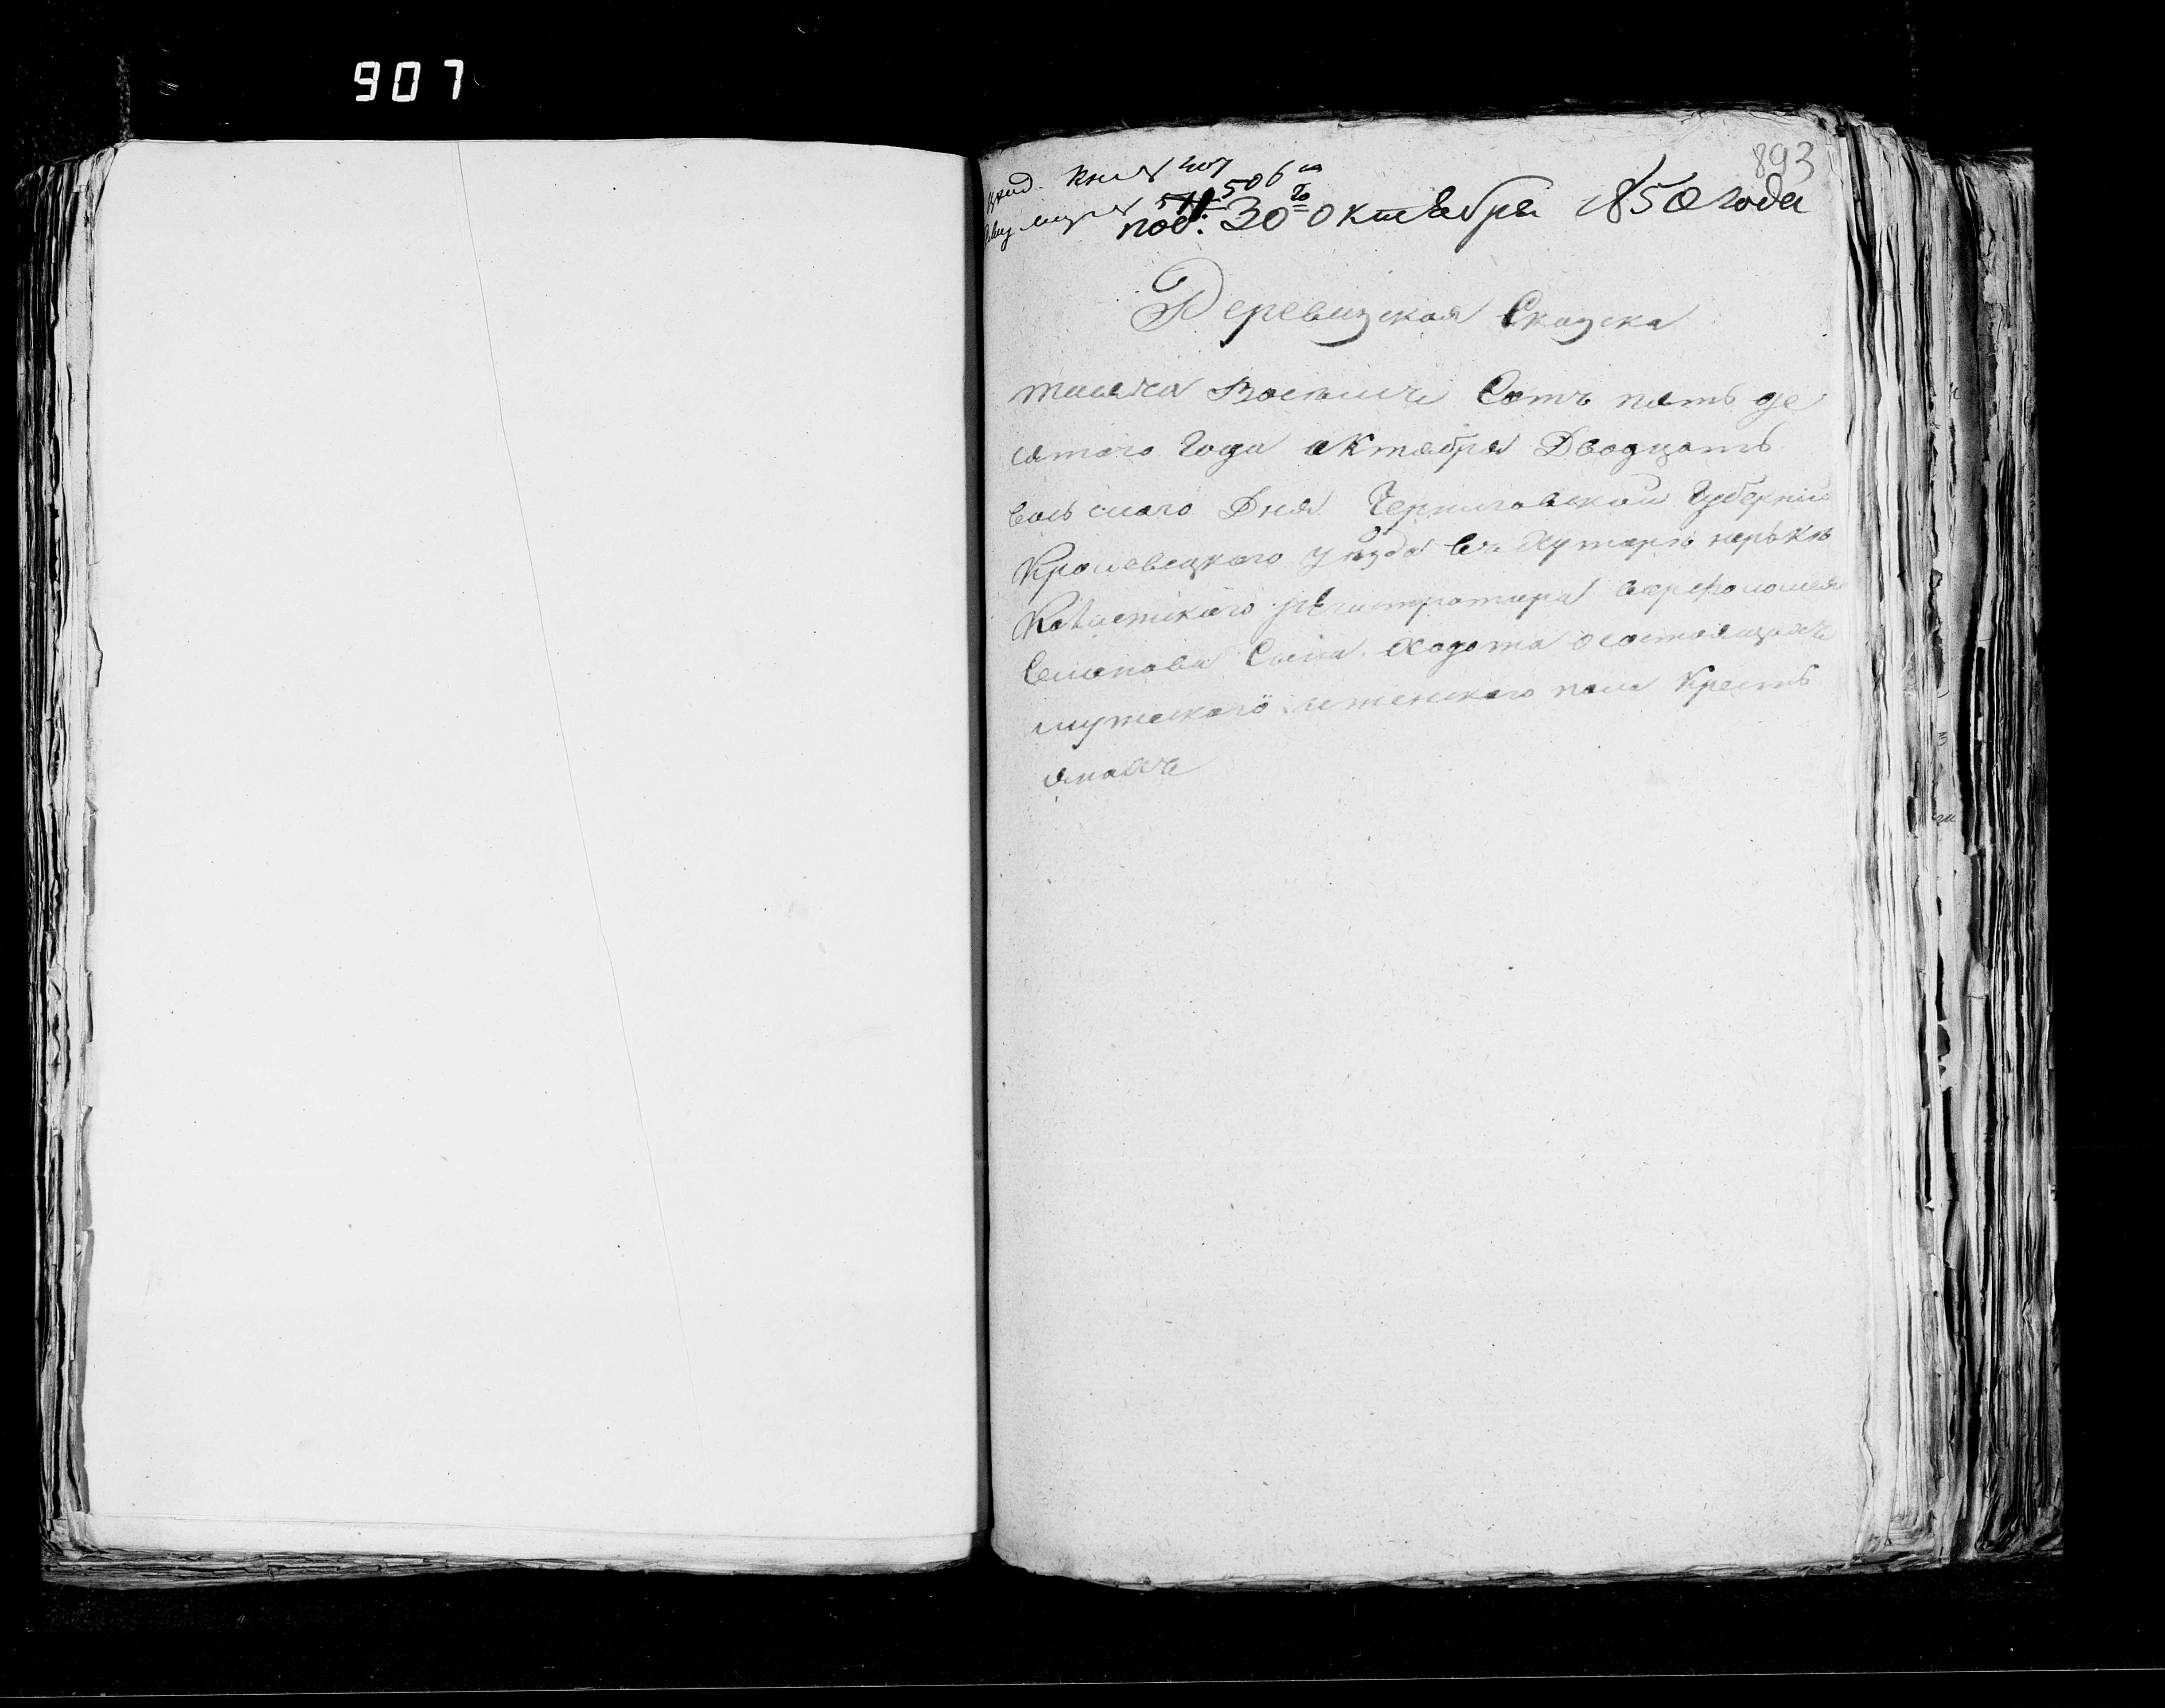 907
893
506
пod. 30го Октября 1850 года
Деревизская Сказска
тысяча Восемъ Сотъ пять де
сятого года октября Двадцать
восьмого Дня Черниговской Губерний
Кролевецкого уезда въ Хуторъ
Колежского регистратора варфоломея
Семенова Сына Ходота о состоящихъ
мужеского и женского пола Кресть
янахъ